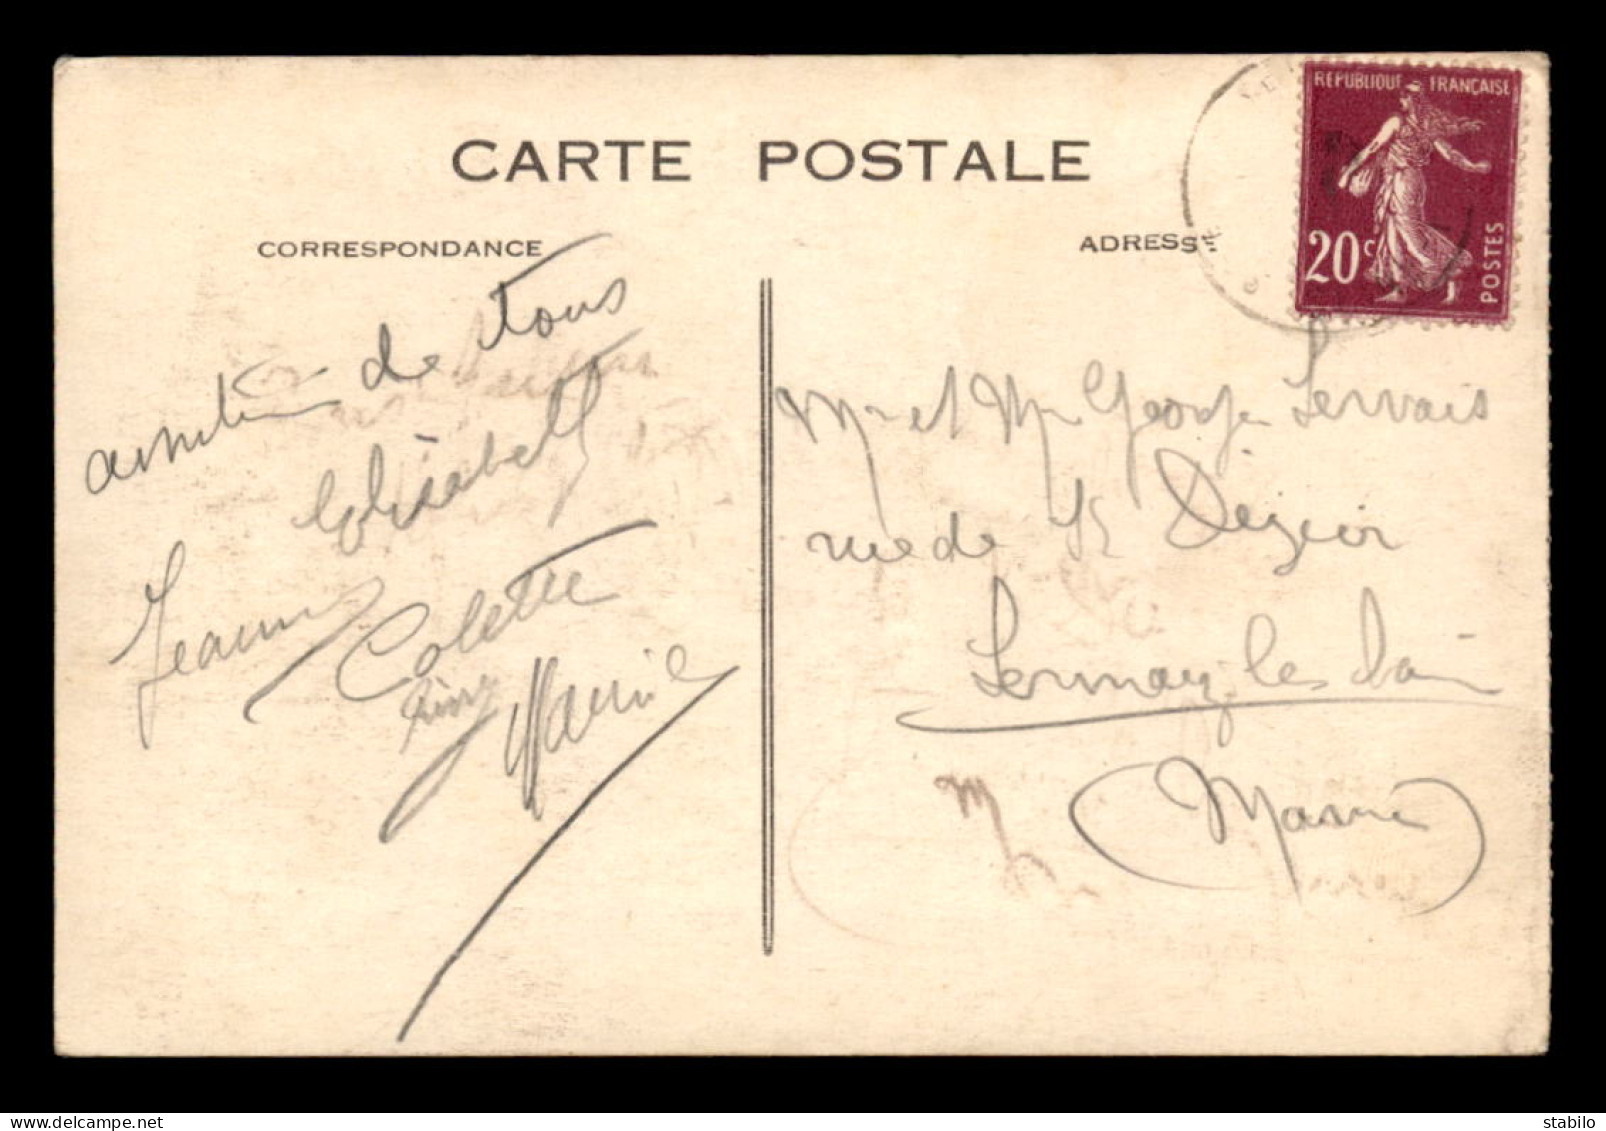 CARTE POSTALE
CORRESPONDANCE
ADRESSE
REPUBLIQUE FRANÇAISE
20c
POSTES
amitiés de tous
Elisabeth
Jeanne
Colette
Mr et Mme George Servais
rue de St Dizier
Sermaize les Bains
(Marne)
www.delcampe.net
stabilo